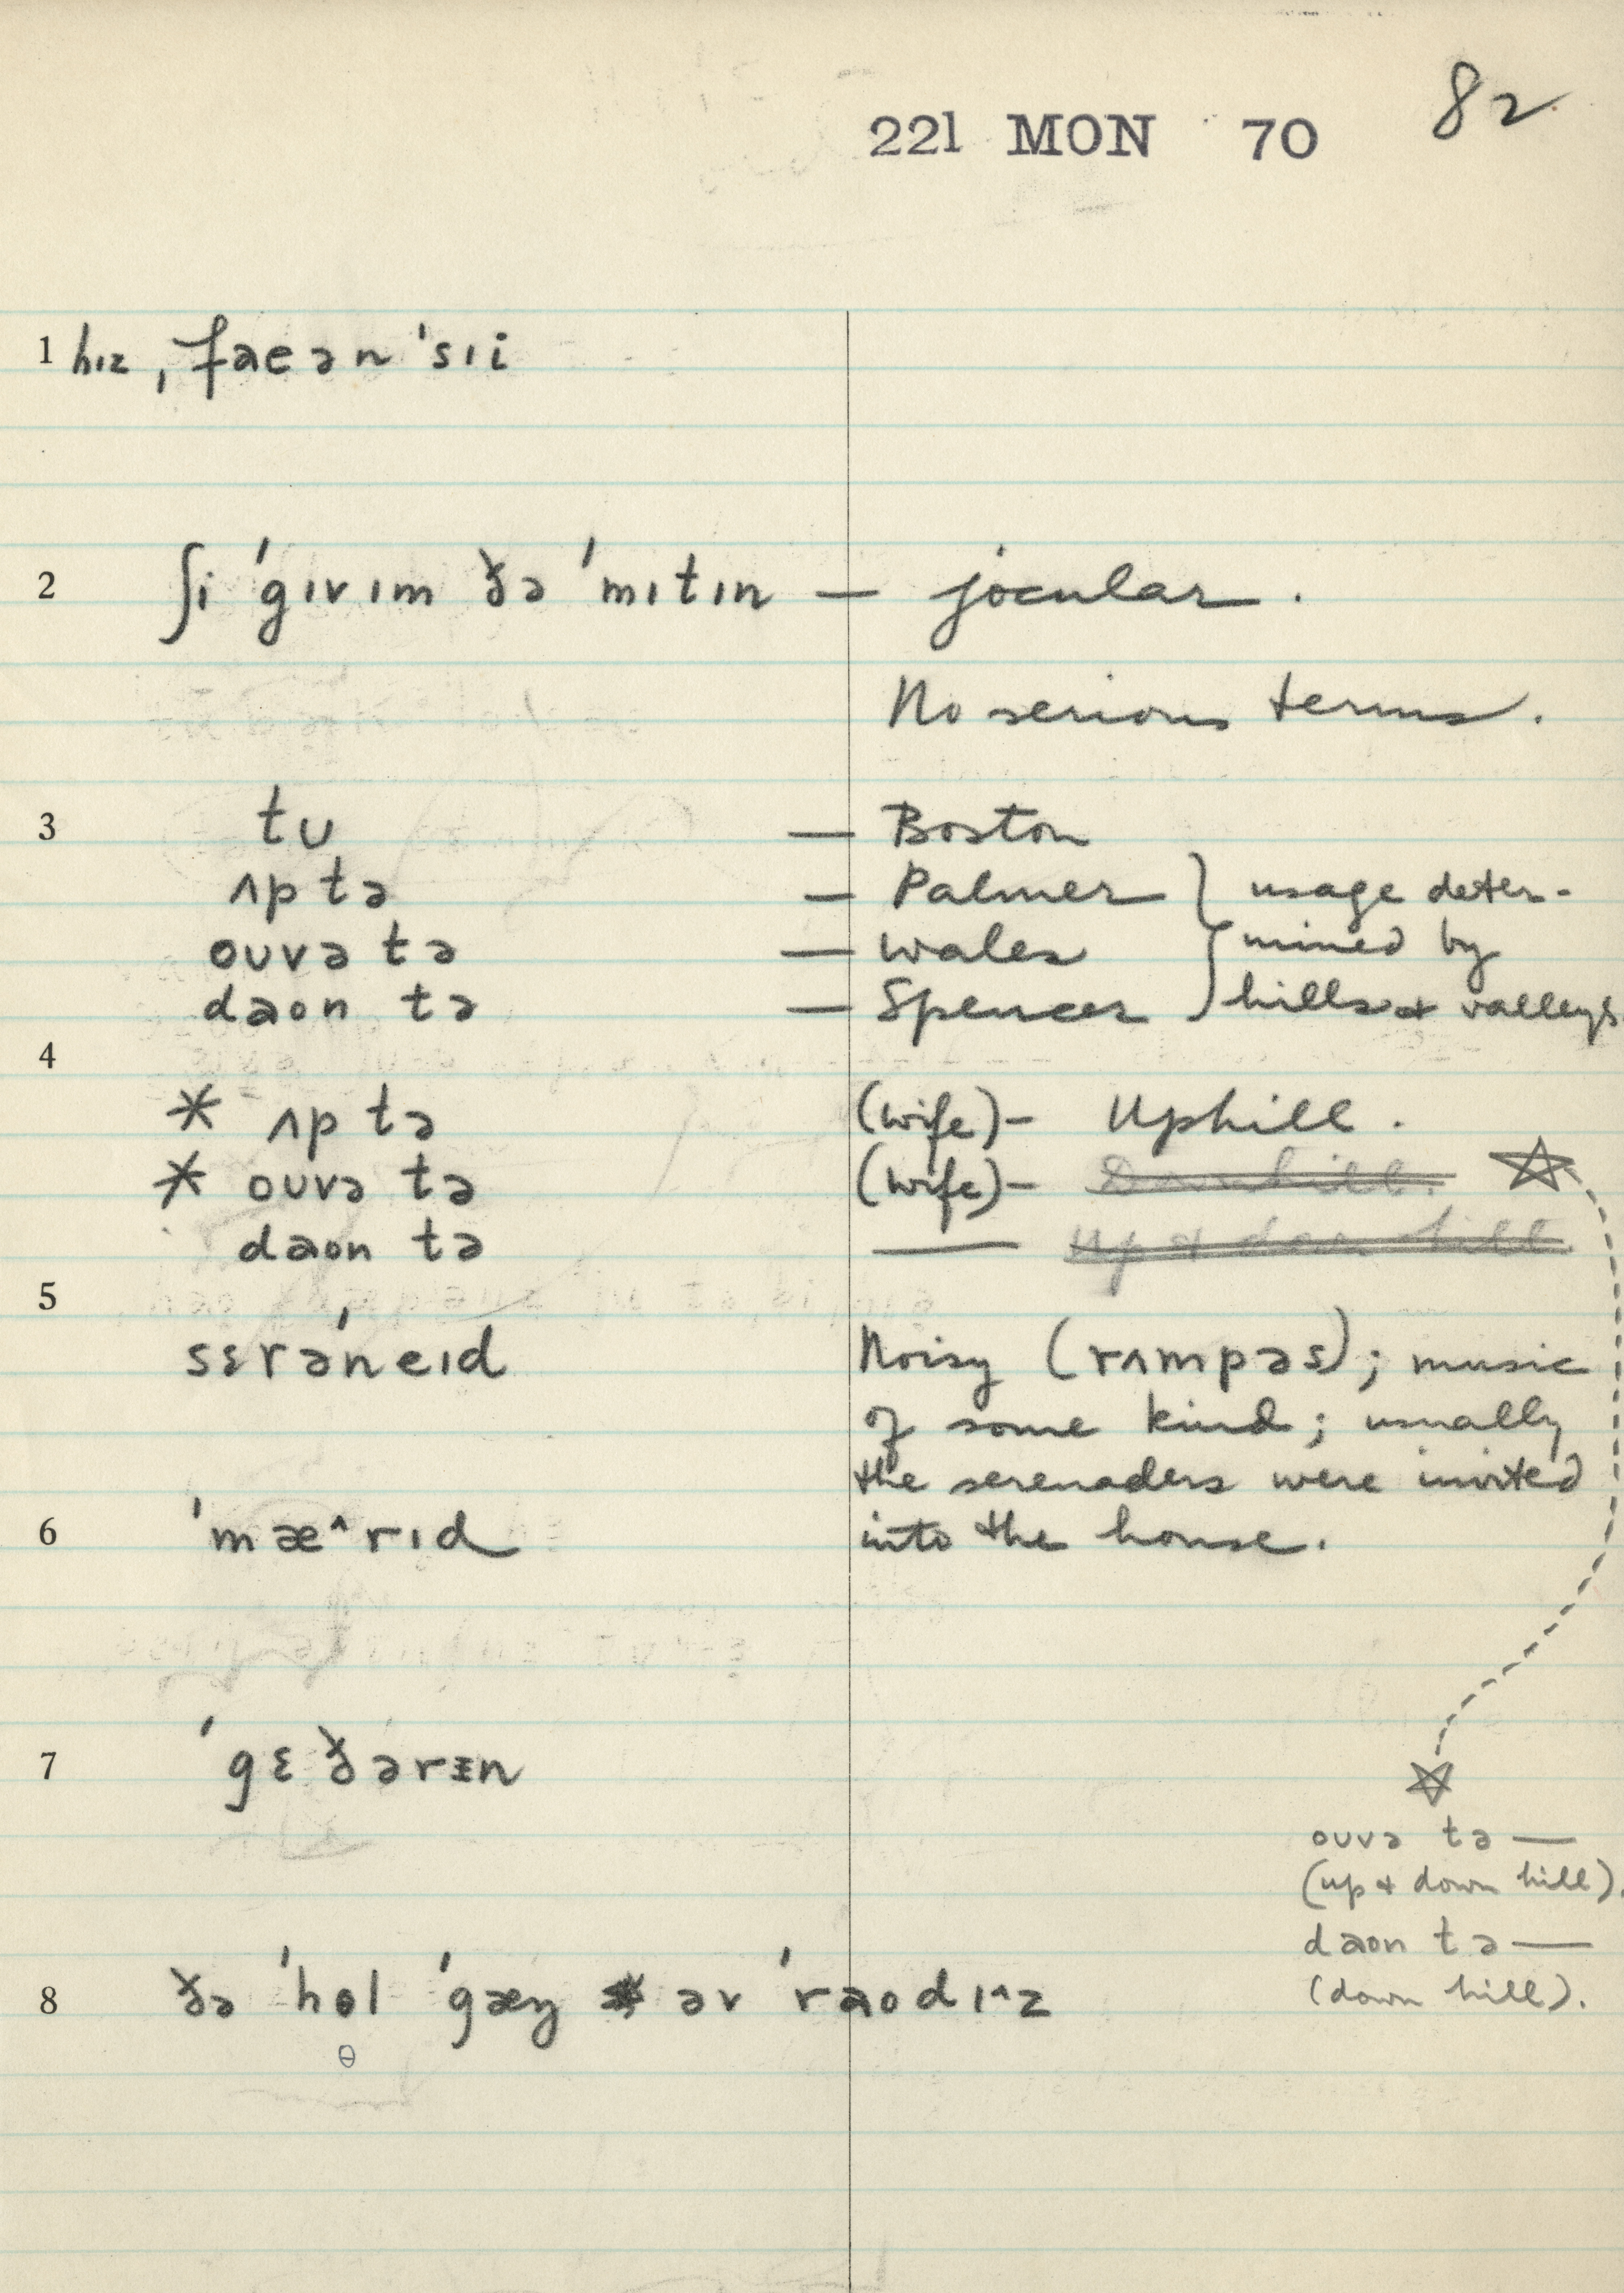 82
221 MON 70
1 hɪz ˌfaeən ˈsɪi
2 ʃi ˈgɪvɪm ðə ˈmɪtɪn — jocular.
No serious terms.
3 tu — Boston
ʌp tə — Palmer } usage deter-
ouvə tə — Wales } mined by
daon tə — Spencer } hills & valleys
4
* ʌp tə (wife) – Uphill.
* ouvə tə (wife) – Downhill. ☆
daon tə — Up & down hill
5
sɛrəˈneɪd Noisy (rʌmpəs); music
of some kind; usually
the serenaders were invited
6 ˈmæ^rɪd into the house.
7 ˈgɛðərɪn
☆
ouvə tə —
(up & down hill).
daon tə —
(down hill).
8 ðə ˈhɵl ˈgæŋ əv ˈraodɪ^z
ɵ